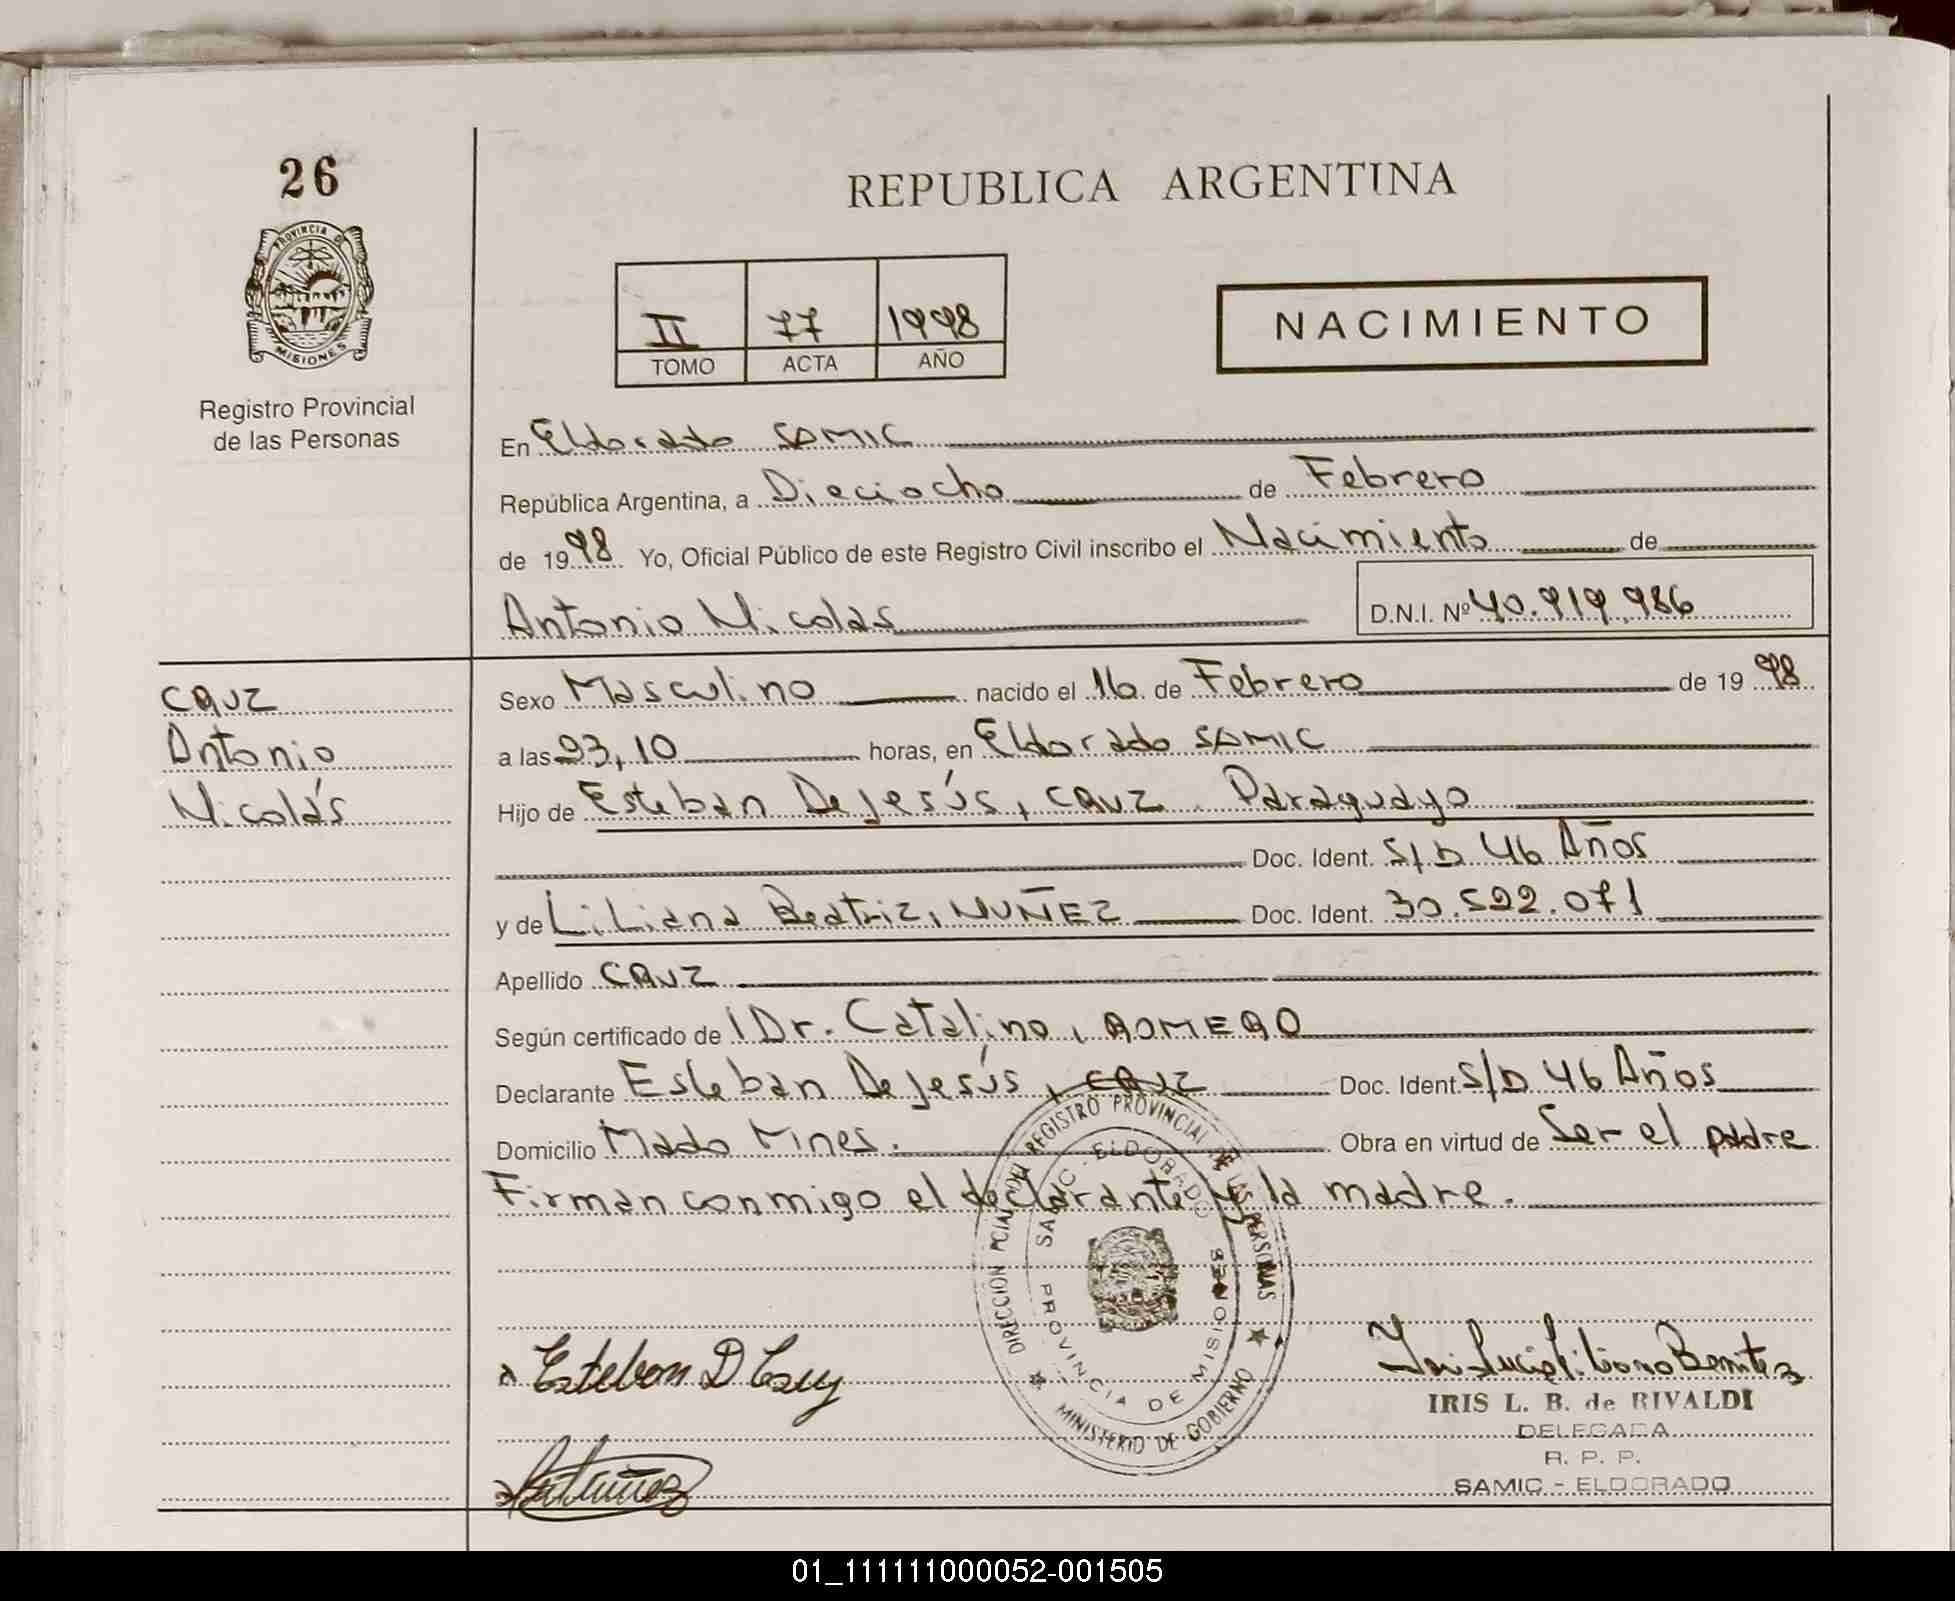 26
PROVINCIA DE
MISIONES
Registro Provincial
de las Personas
REPUBLICA ARGENTINA
II 77 1998
TOMO ACTA AÑO
NACIMIENTO
En Eldorado SAMIC
República Argentina, a Dieciocho de Febrero
de 1998 Yo, Oficial Público de este Registro Civil inscribo el Nacimiento de
Antonio Nicolas D.N.I. Nº 40.919.986
CRUZ
Antonio
Nicolás
Sexo Masculino nacido el 16 de Febrero de 1998
a las 23,10 horas, en Eldorado SAMIC
Hijo de Esteban De Jesús, CRUZ Paraguayo
Doc. Ident. S/D 46 Años
y de Liliana Beatriz, NUÑEZ Doc. Ident. 30.522.071
Apellido CRUZ
Según certificado de Dr. Catalino, ROMERO
Declarante Esteban De Jesús, CRUZ Doc. Ident. S/D 46 Años
Domicilio Mado Mnes. Obra en virtud de Ser el padre
Firman conmigo el declarante y la madre.
DIRECCIÓN PCIAL. DEL REGISTRO PROVINCIAL DE LAS PERSONAS
SAMIC - ELDORADO
PROVINCIA DE MISIONES
MINISTERIO DE GOBIERNO
Esteban D Cruz
IRIS L. B. de RIVALDI
DELEGADA
R. P. P.
SAMIC - ELDORADO
01_111111000052-001505